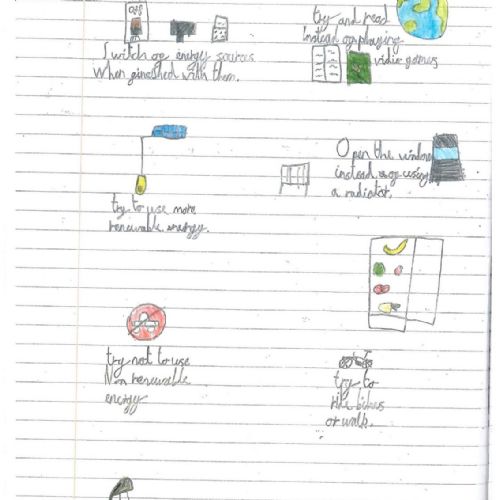 off
Switch of energy sources
when finished with them.
try and read
instead of playing
vidio games
Open the window
instead of using
a radiator.
try to use more
renewable energy.
try not to use
Non renewable
energy
try to
ride bikes
or walk.